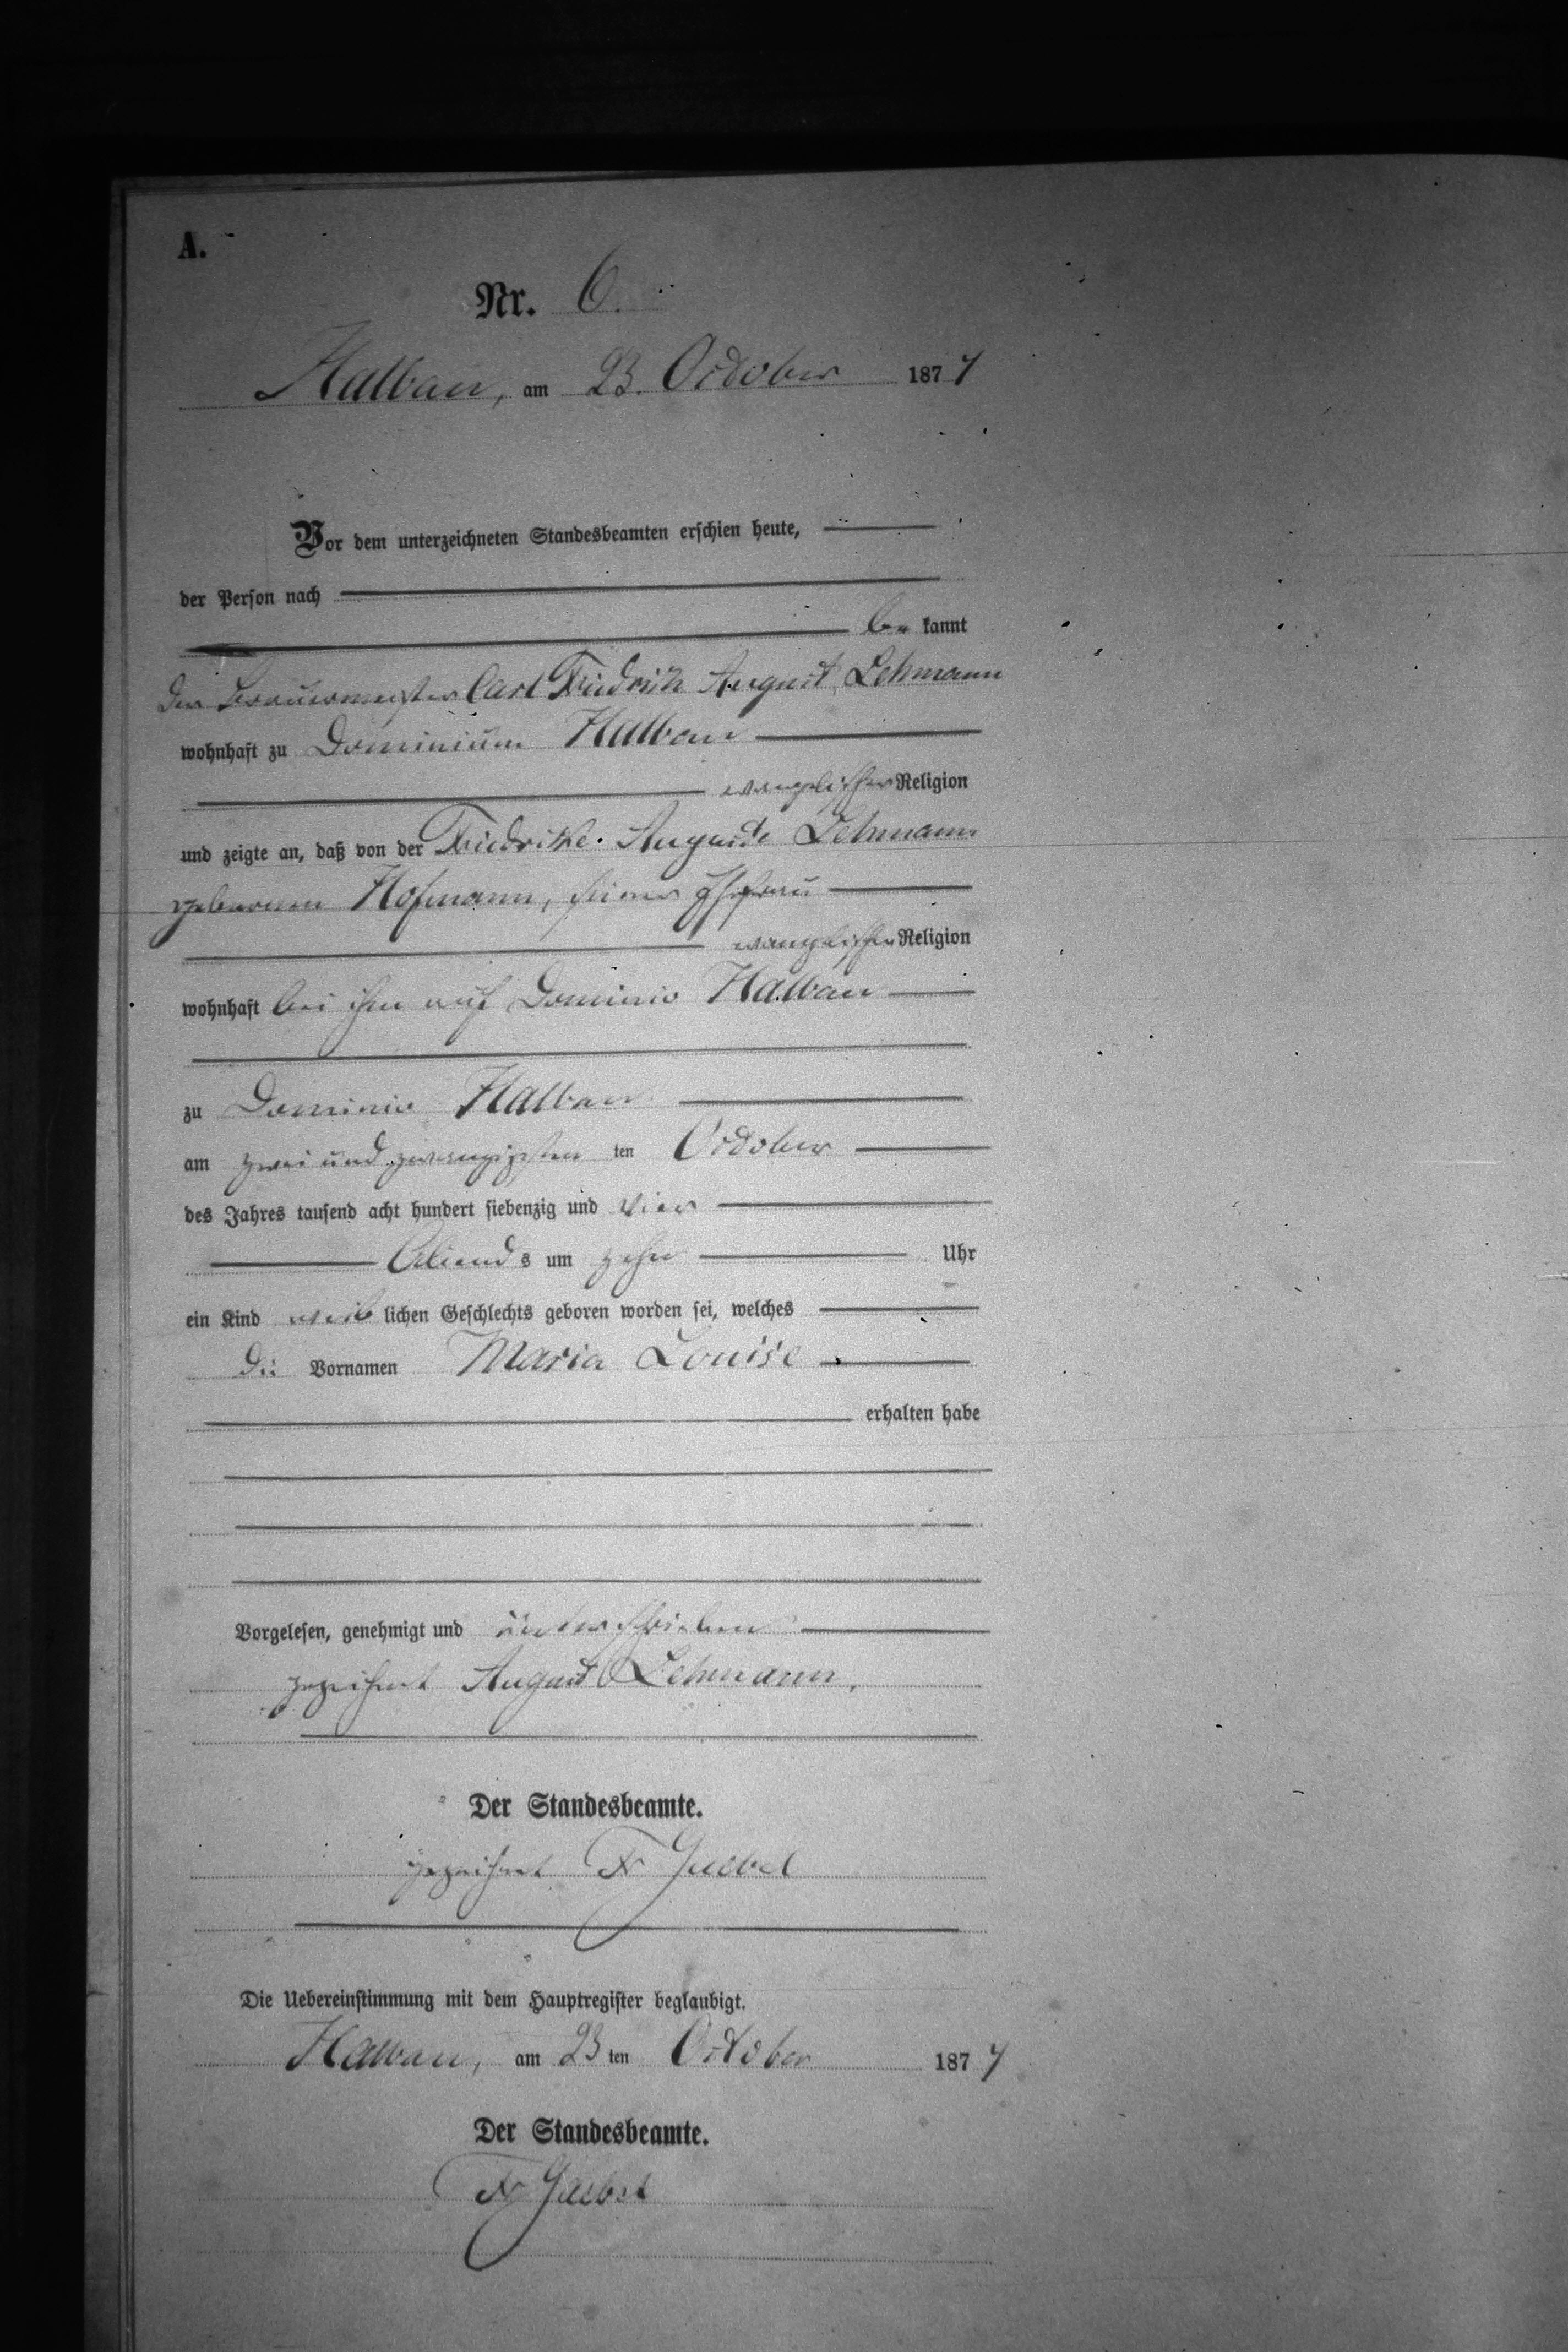 A.
Nr. 6.
Halbau, am 23. October 1874
Vor dem unterzeichneten Standesbeamten erschien heute,
der Person nach
be kannt
der Brauermeister Carl Friedrich August Lehmann
wohnhaft zu Dominium Halbau
evangelischer Religion
und zeigte an, daß von der Friedrike Auguste Lehmann
geborenen Hofmann, seiner Ehefrau
evangelischer Religion
wohnhaft bei ihm auf Dominio Halbau
zu Dominio Halbau
am zwei und zwanzigsten ten October
des Jahres tausend acht hundert siebenzig und vier
Abends um zehn Uhr
ein Kind weiblichen Geschlechts geboren worden sei, welches
die Vornamen Maria Louise
erhalten habe
Vorgelesen, genehmigt und unterschrieben
gezeichnet August Lehmann.
Der Standesbeamte.
gezeichnet Fr
Die Uebereinstimmung mit dem Hauptregister beglaubigt.
Halbau, am 23 ten October 1874
Der Standesbeamte.
Fr